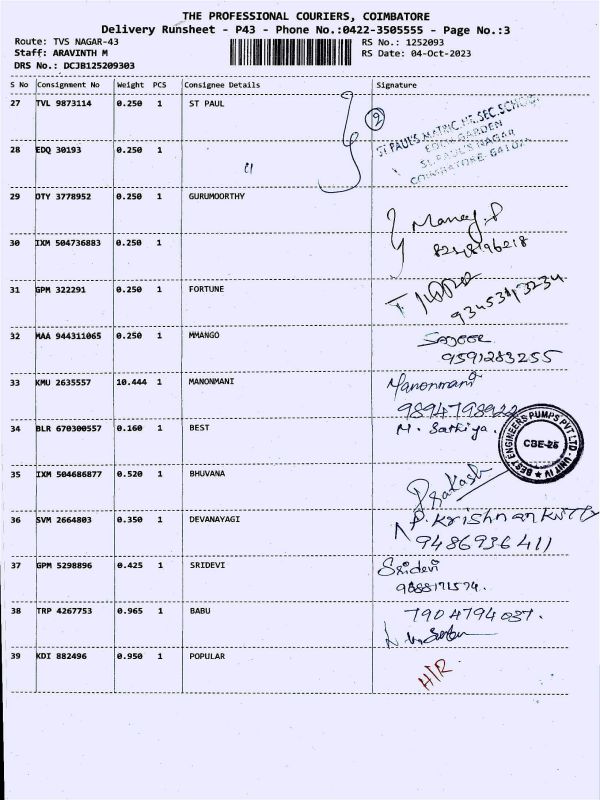 THE PROFESSIONAL COURIERS, COIMBATORE
Delivery Runsheet - P43 - Phone No.:0422-3505555 - Page No.:3
Route: TVS NAGAR-43 RS No.: 1252093
Staff: ARAVINTH M RS Date: 04-Oct-2023
DRS No.: DCJB125209303
S No Consignment No Weight PCS Consignee Details Signature
27 TVL 9873114 0.250 1 ST PAUL
2
ST PAUL'S MATRIC.HR.SEC.SCHOOL
EDEN GARDEN
ST.PAUL'S NAGAR
COIMBATORE
28 EDQ 30193 0.250 1
29 OTY 3778952 0.250 1 GURUMOORTHY
30 IXM 504736883 0.250 1
31 GPM 322291 0.250 1 FORTUNE
32 MAA 944311065 0.250 1 MMANGO
9591283255
33 KMU 2635557 10.444 1 MANONMANI Manonmani
9894798922
34 BLR 670300557 0.160 1 BEST M. Sathiya.
BEST ENGINEERS PUMPS PVT LTD - UNIT IV
CBE-25
35 IXM 504686877 0.520 1 BHUVANA Prakash
36 SVM 2664803 0.350 1 DEVANAYAGI P. Krishnankutty
9486936411
37 GPM 5298896 0.425 1 SRIDEVI Sridevi
38 TRP 4267753 0.965 1 BABU 7904794087.
39 KDI 882496 0.950 1 POPULAR H/R